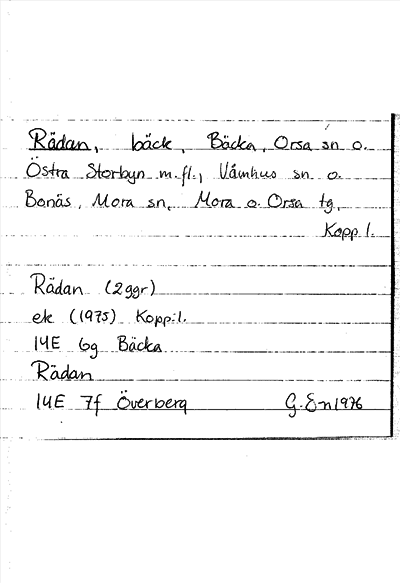 Rädan, bäck, Bäcka, Orsa sn o.
Östra Storbyn m.fl., Våmhus sn o.
Bonäs, Mora sn, Mora o. Orsa tg,
Kopp. l.
Rädan (2ggr)
ek (1975) Kopp.l.
14E 6g Bäcka
Rädan
14E 7f Överberg G. En 1976